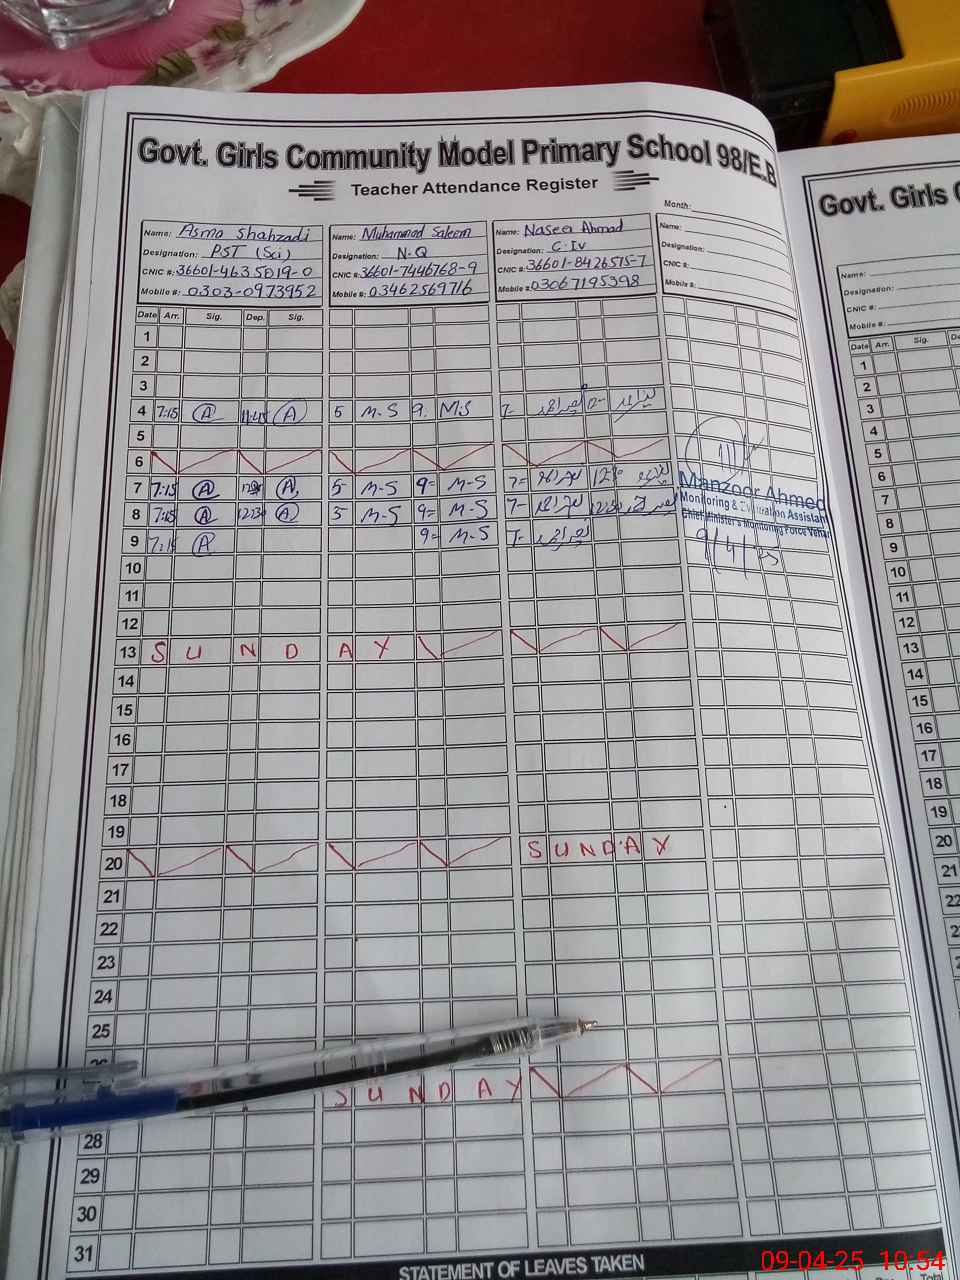 Govt. Girls Community Model Primary School 98/E.B
Teacher Attendance Register
Month:
Name: Asma Shahzadi
Designation: PST (Sci)
CNIC #: 36601-4635019-0
Mobile #: 0303-0973952
Name: Muhammad Saleem
Designation: N.Q
CNIC #: 36601-7446768-9
Mobile #: 03462569716
Name: Naseer Ahmad
Designation: C-IV
CNIC #: 36601-8426515-7
Mobile #: 03067195398
Name:
Designation:
CNIC #:
Mobile #:
Date Arr. Sig. Dep. Sig.
1
2
3
4 7:15 A 11:45 A 5 M-S 9. M.S 7-
5
6
7 7:15 A A 5- M-S 9= M-S 7=
8 7:15 A 12:30 A 5 M-S 9= M-S 7- 12:30
9 7:15 A 9= M-S 7-
Manzoor Ahmed
Monitoring & Evaluation Assistant
Chief Minister's Monitoring Force Vehari
9/4/25
10
11
12
13 SUNDAY
14
15
16
17
18
19
20 SUNDAY
21
22
23
24
25
SUNDAY
28
29
30
31
STATEMENT OF LEAVES TAKEN
Govt. Girls
Name:
Designation:
CNIC #:
Mobile #:
Date Arr. Sig.
1
2
3
4
5
6
7
8
9
10
11
12
13
14
15
16
17
18
19
20
21
22
Total
09-04-25 10:54